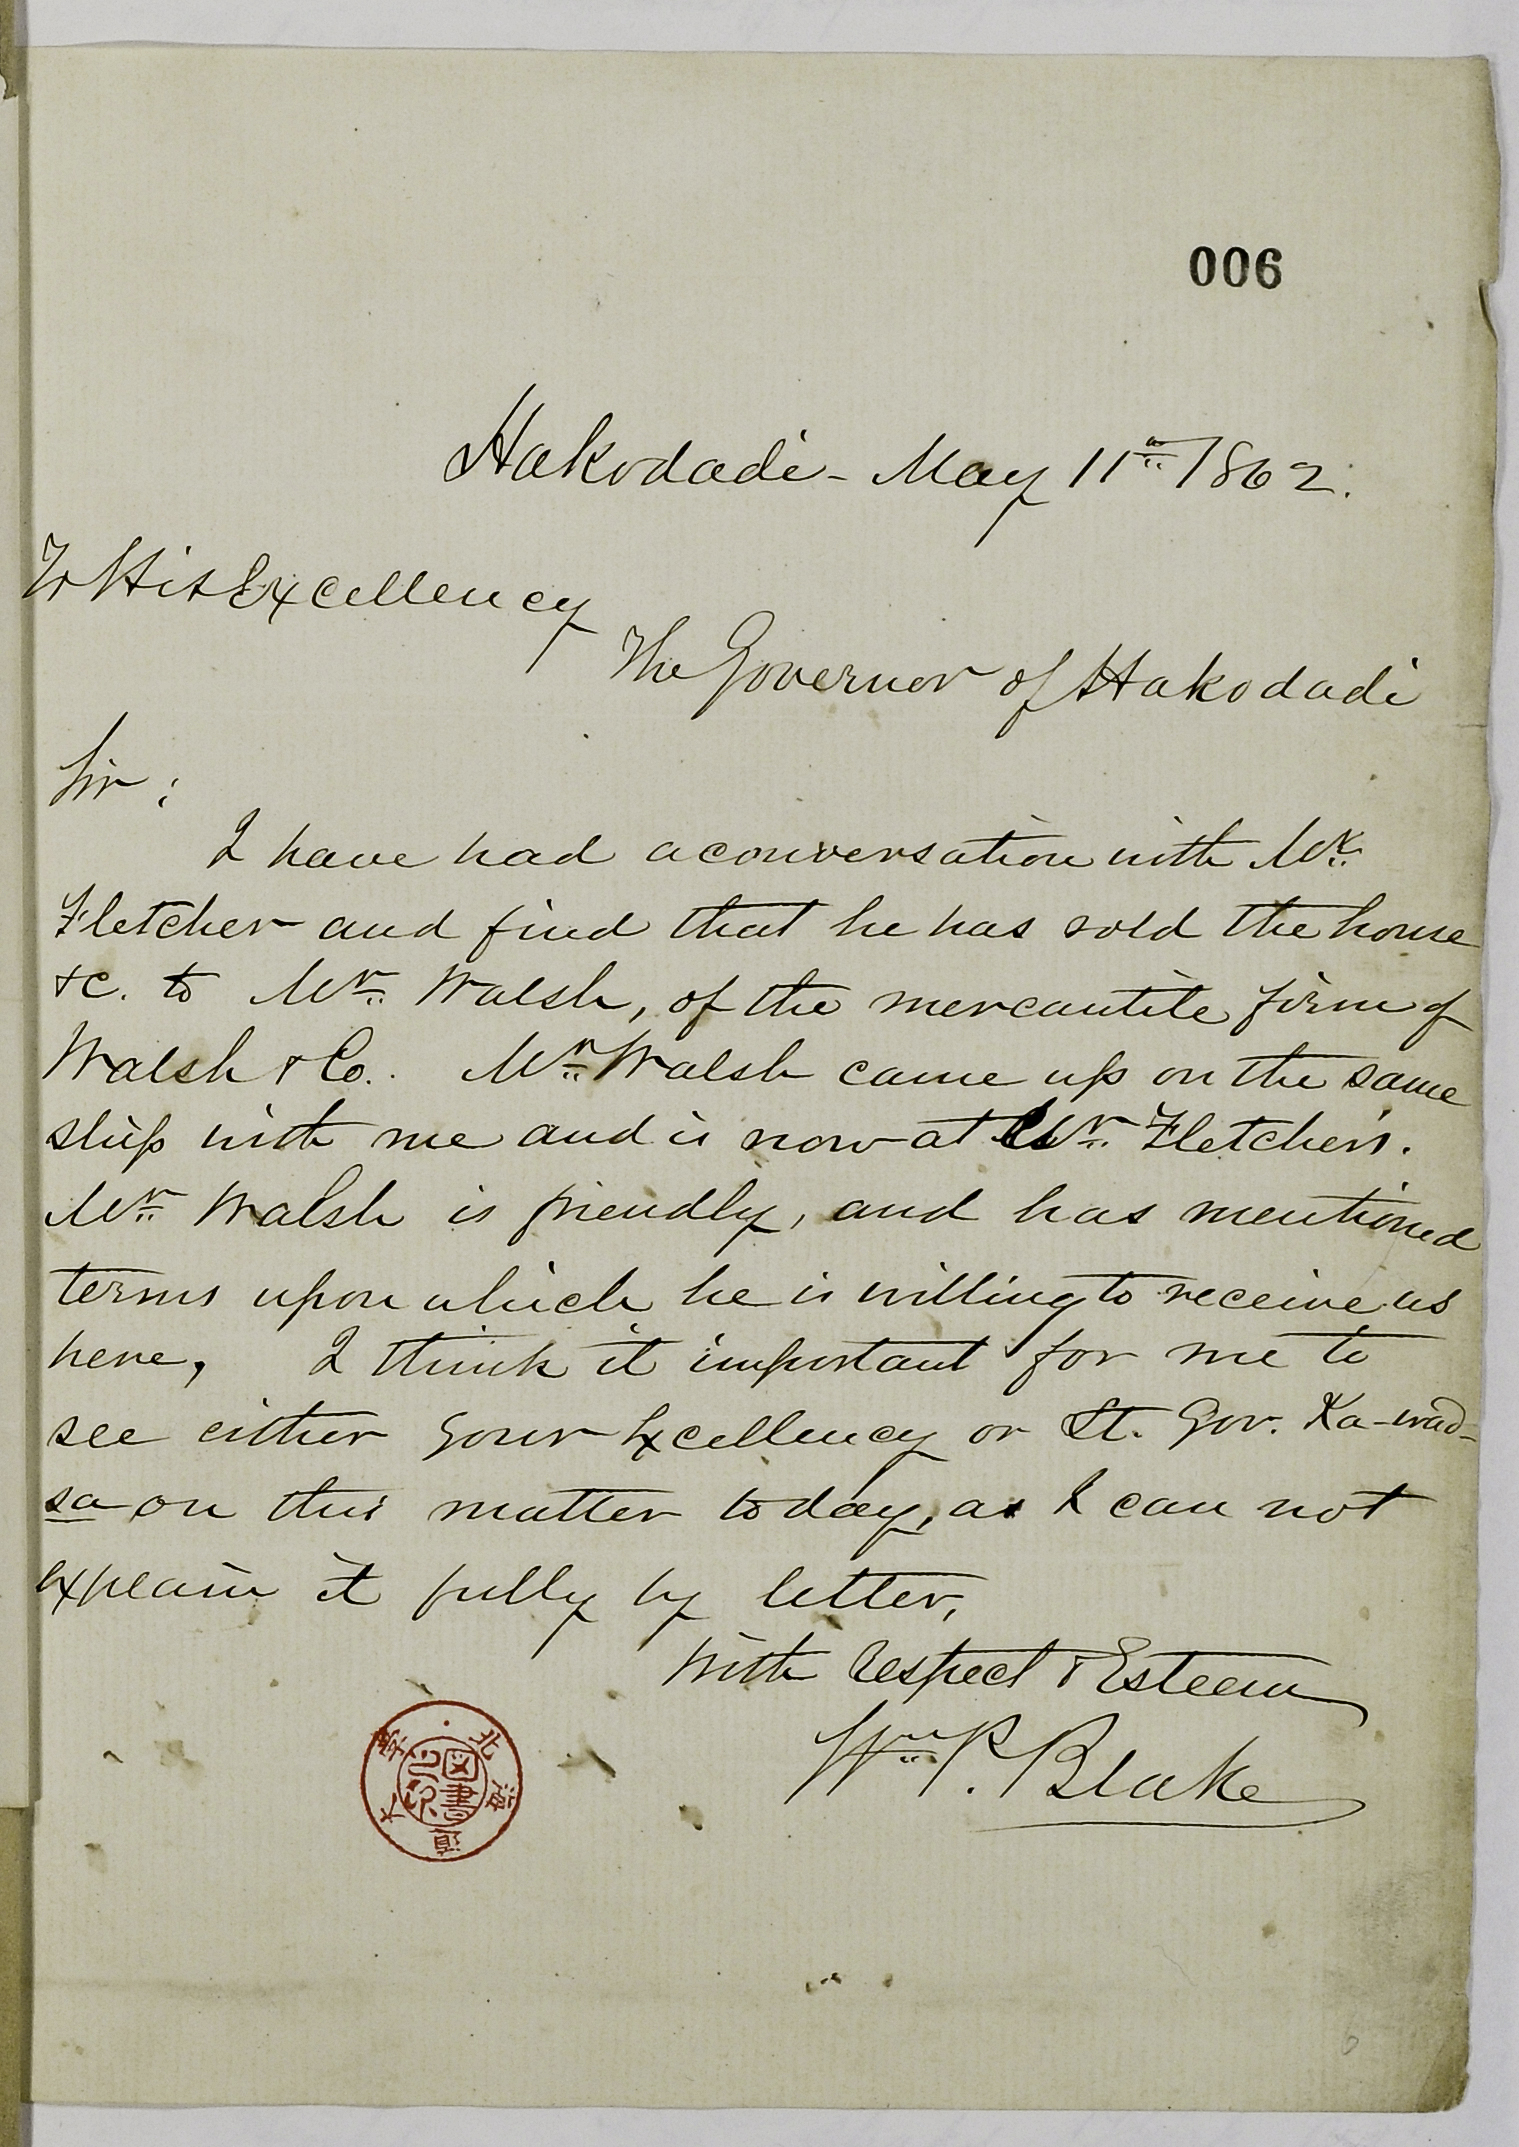 006
Hakodadi - May 11th 1862.
To His Excellency
The Governor of Hakodadi
Sir:
I have had a conversation with Mr.
Fletcher and find that he has sold the house
&c. to Mr. Walsh, of the mercantile firm of
Walsh & Co. Mr. Walsh came up on the same
ship with me and is now at Mr. Fletcher's.
Mr. Walsh is friendly, and has mentioned
terms upon which he is willing to receive us
here, I think it important for me to
see either your Excellency or Lt. Gov. Ka-wad-
sa on this matter today, as I can not
explain it fully by letter,
With Respect & Esteem
Wm. P. Blake
図書
6